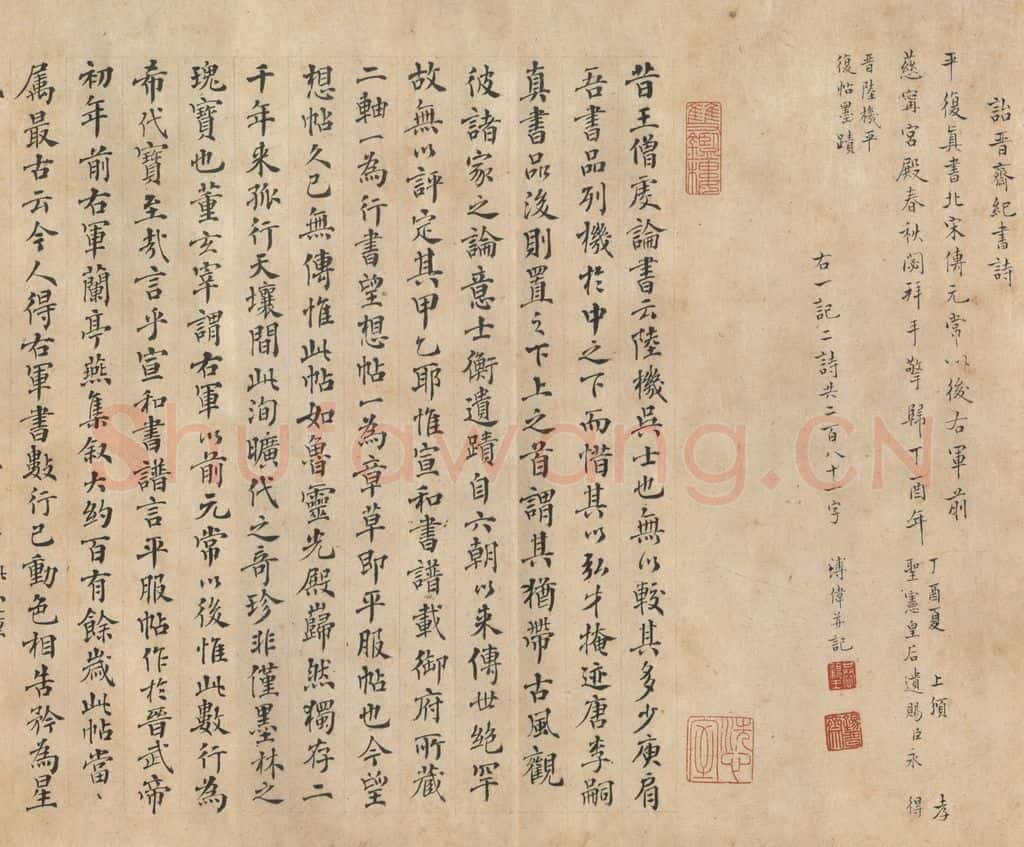 詒晉齋紀書詩
平復真書北宋傳元常以後右軍前
丁酉夏 上頒 孝
慈寧宮殿春秋閟拜手擎歸丁酉年
聖憲皇后遺賜臣永 得
晉陸機平
復帖墨蹟
右一記二詩共二百八十一字 溥偉并記
雙鑑樓
昔王僧虔論書云陸機吳士也無以較其多少庾肩
吾書品列機於中之下而惜其以弘才掩迹唐李嗣
真書品後則置之下上之首謂其猶帶古風觀
彼諸家之論意士衡遺蹟自六朝以來傳世絕罕
故無以評定其甲乙耶惟宣和書譜載御府所藏
二軸一為行書望想帖一為章草即平復帖也今望
想帖久已無傳惟此帖如魯靈光殿巋然獨存二
千年來孤行天壤間此洵曠代之奇珍非僅墨林之
瑰寶也董玄宰謂右軍以前元常以後惟此數行為
希代寶至哉言乎宣和書譜言平復帖作於晉武帝
初年前右軍蘭亭燕集叙大約百有餘歲此帖當、
属最古云今人得右軍書數行已動色相告矜為星
Shufawang.CN